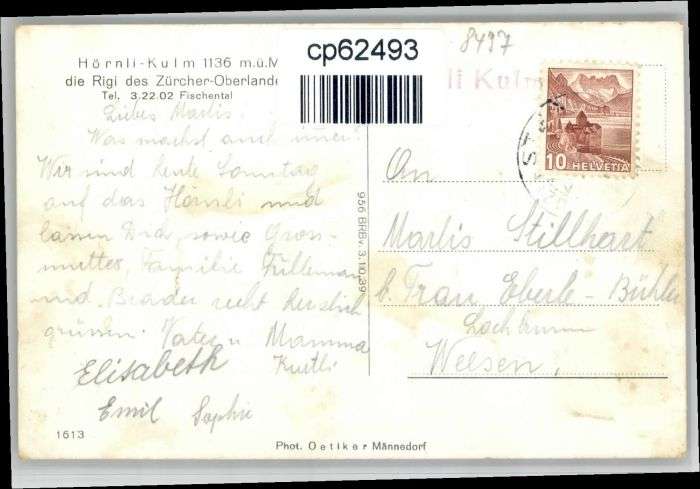 Hörnli-Kulm 1136 m.ü.M
die Rigi des Zürcher-Oberlande
Tel. 3.22.02 Fischental
cp62493
8497
li Kulm
10 HELVETIA
Liebes Marlis.
Was machst auch immer?
Wir sind heute Sonntag
auf das Hörnli und
lassen Dich, sowie Gross-
mutter, Familie Fülleman
und Bruder recht herzlich
grüssen. Vater u Mamma
Elisabeth Kurtli
Emil Sophie
An
Marlis Stillhart
b. Frau Eberle-Bühler
Weesen.
956 BRB v. 3.10.39
1613
Phot. Oetiker Männedorf